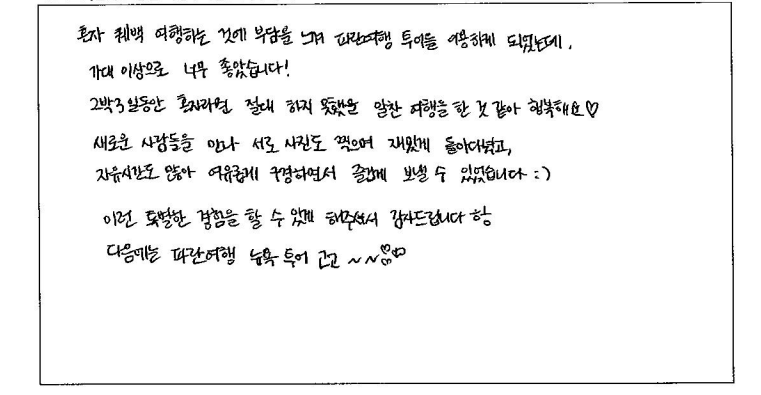 혼자 퀘백 여행하는 것에 부담을 느껴 파란여행 투어를 이용하게 되었는데,
기대 이상으로 너무 좋았습니다!
2박3일동안 혼자라면 절대 하지 못했을 알찬 여행을 한 것 같아 행복해요♡
새로운 사람들을 만나 서로 사진도 찍으며 재밌게 돌아다녔고,
자유시간도 많아 여유롭게 구경하면서 즐겁게 보낼 수 있었습니다 :)
이런 특별한 경험을 할 수 있게 해주셔서 감사드립니다 항
다음에는 파란여행 뉴욕 투어 고고 ~~♡♡♡